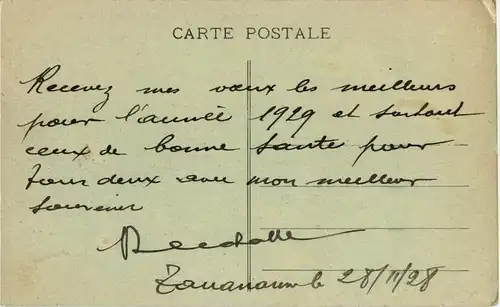 CARTE POSTALE
Recevez mes vœux les meilleurs
pour l'année 1929 et surtout
ceux de bonne santé pour
tous deux avec mon meilleur
souvenir
le 28/11/28